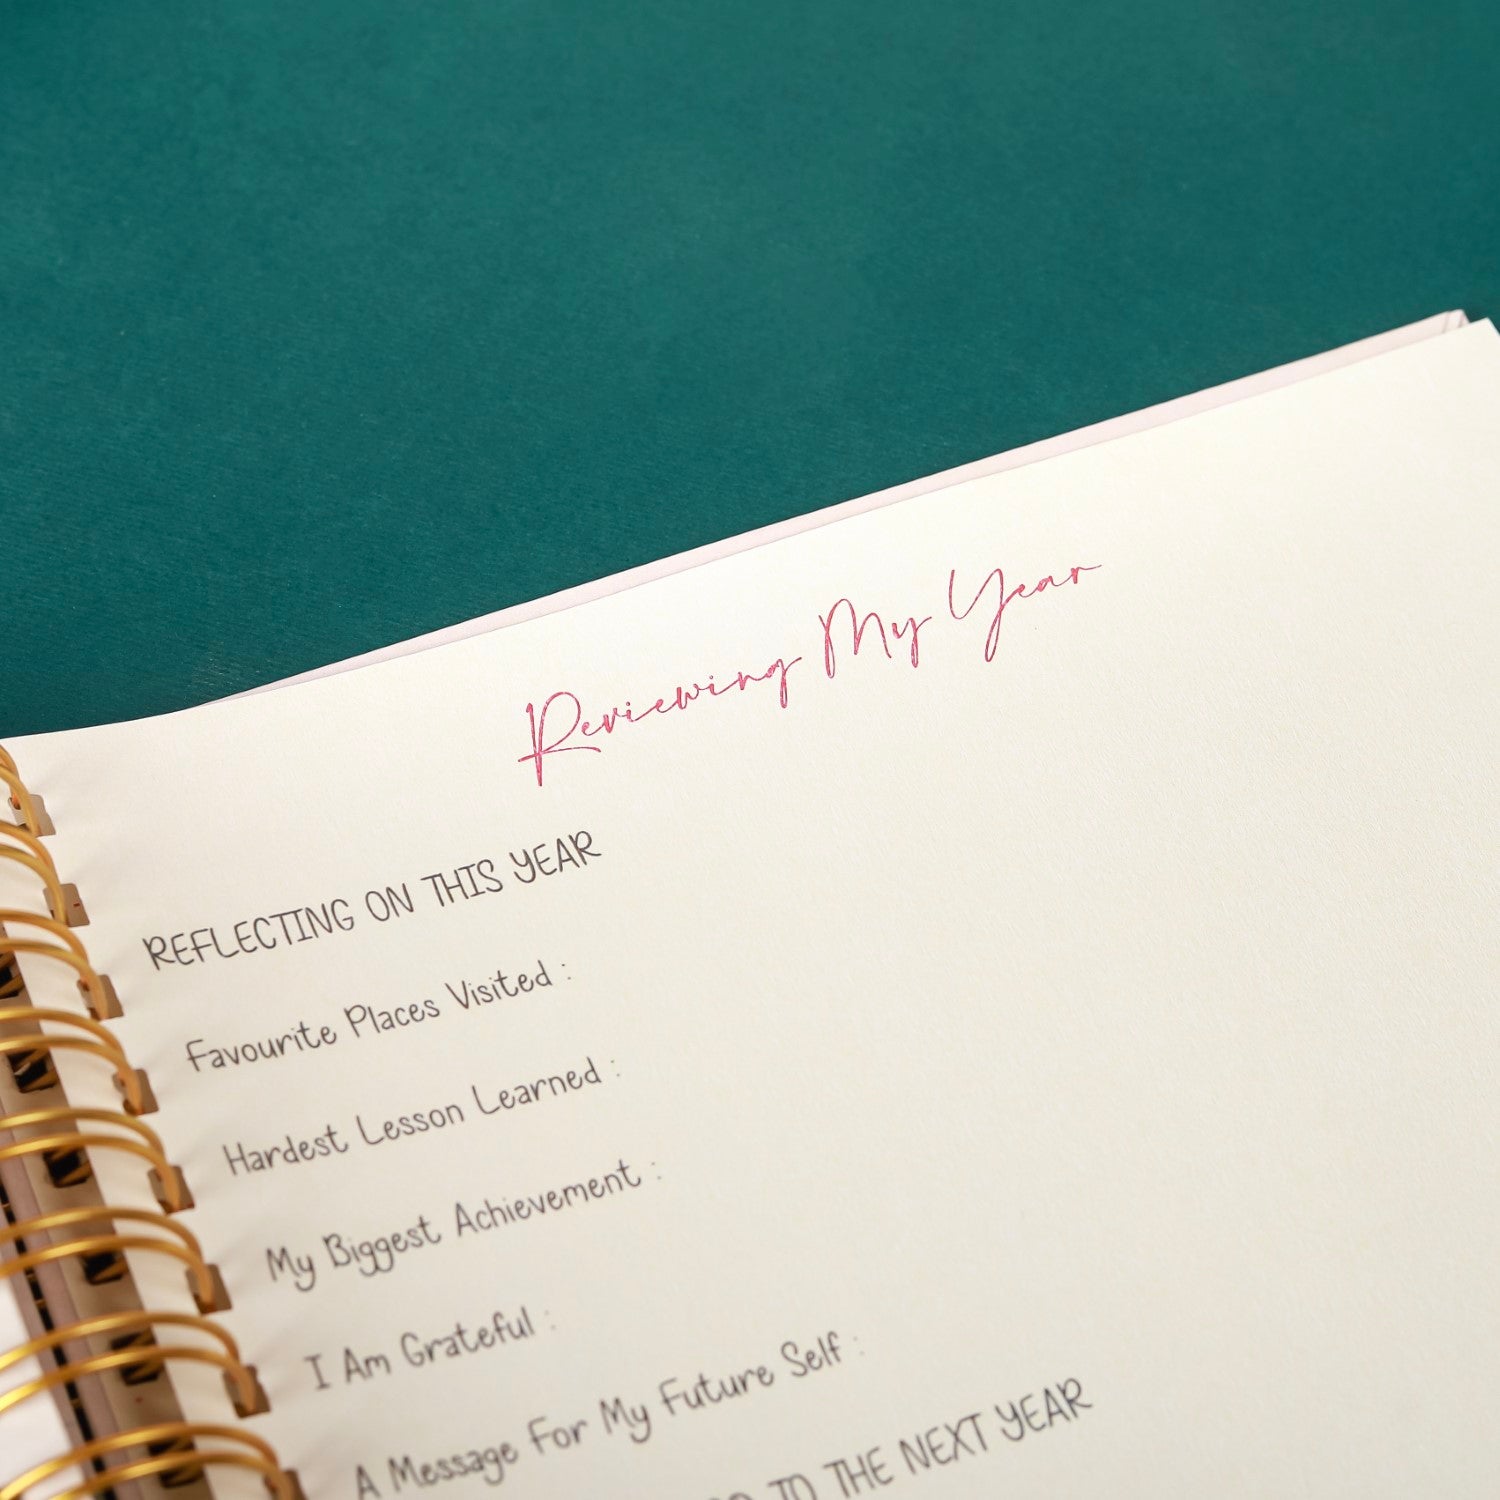 Reviewing My Year
REFLECTING ON THIS YEAR
Favourite Places Visited :
Hardest Lesson Learned :
My Biggest Achievement :
I Am Grateful :
A Message For My Future Self :
TO THE NEXT YEAR